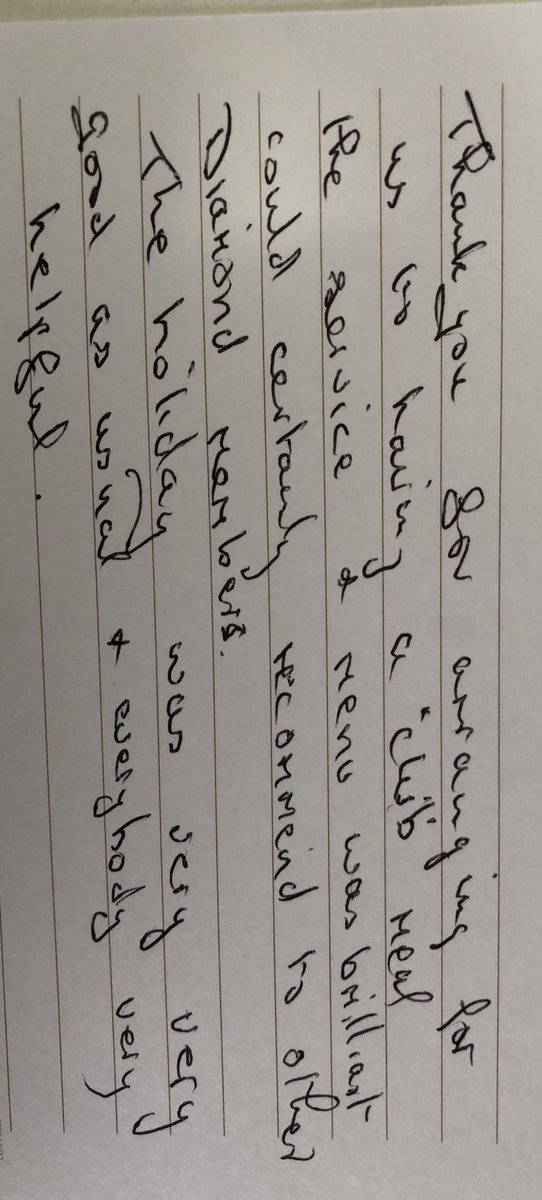 Thank you for arranging for
us to having a "club" meal
the service & menu was brilliant
could certainly recommend to other
Diamond members.
The holiday was very very
good as usual & everybody very
helpful.